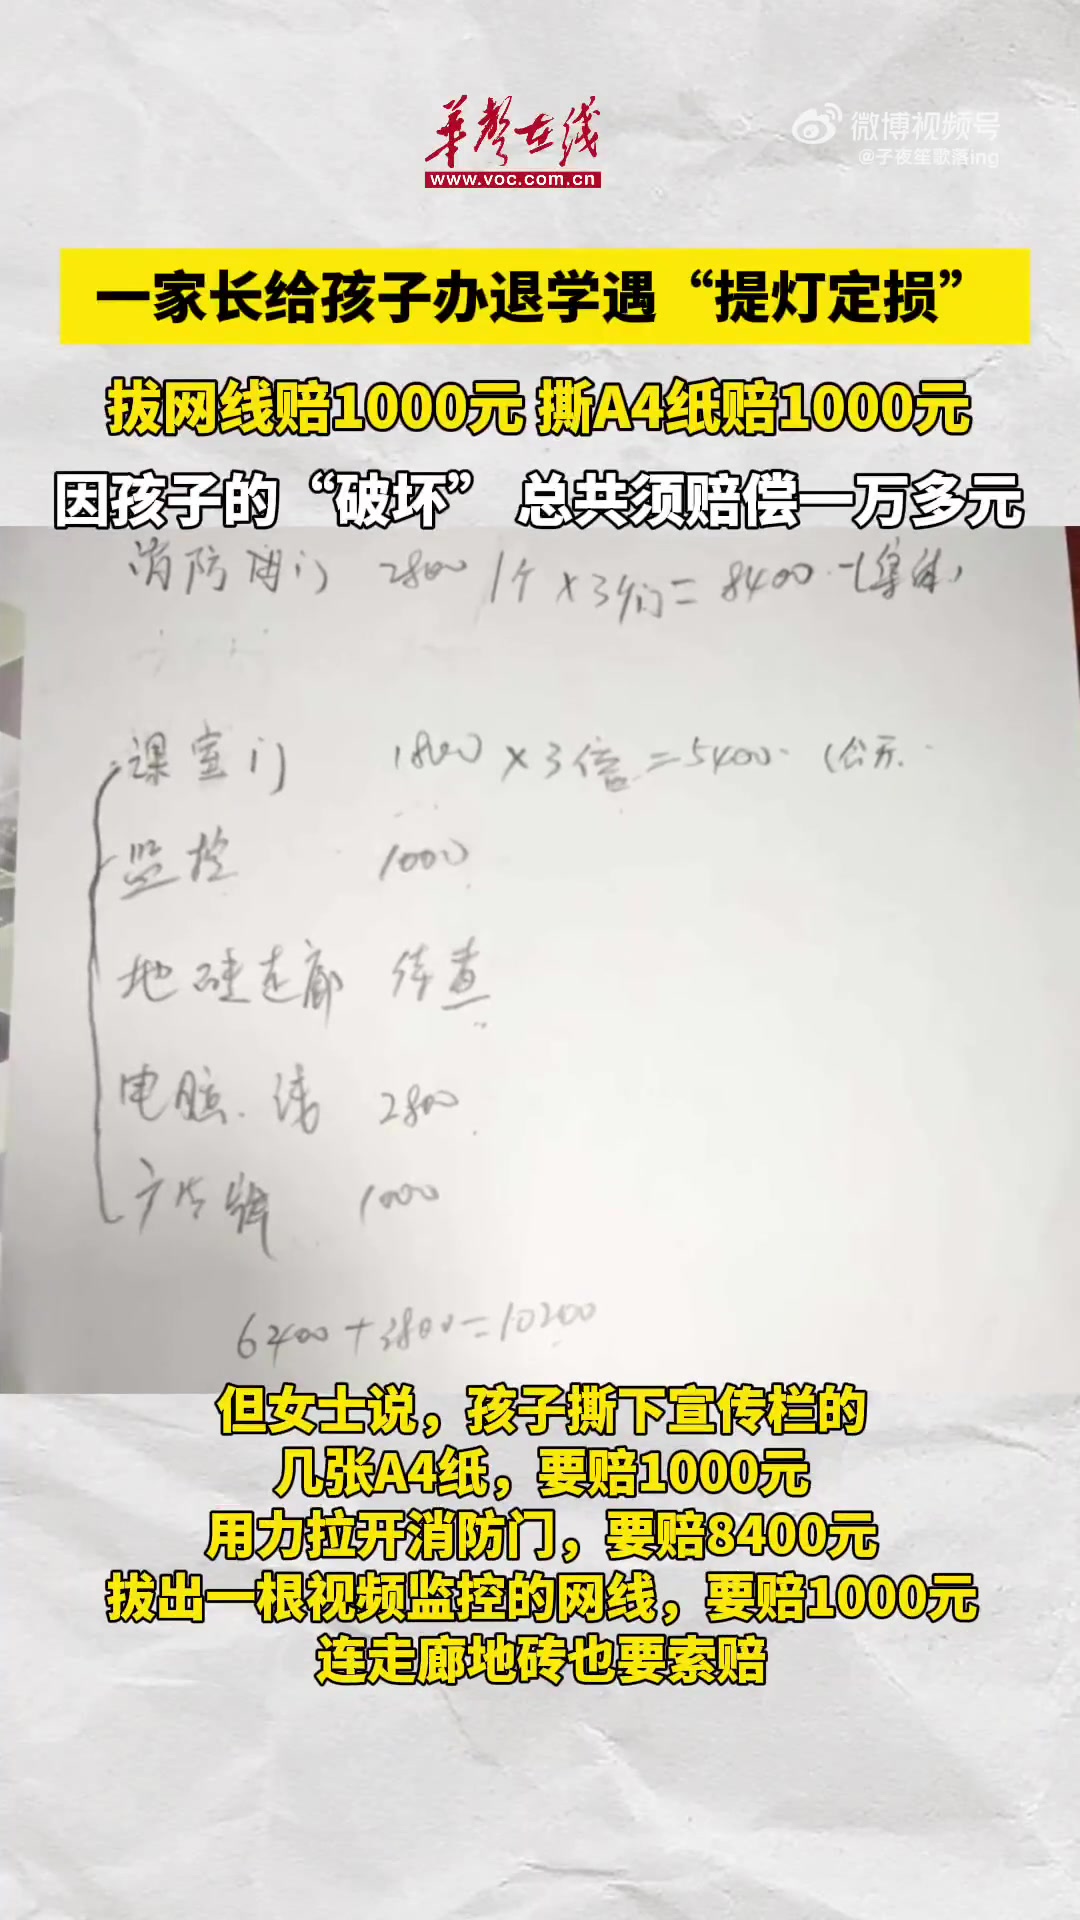 華聲在线
www.voc.com.cn
微博视频号
@子夜笙歌落ing
一家长给孩子办退学遇“提灯定损”
拔网线赔1000元 撕A4纸赔1000元
因孩子的“破坏” 总共须赔偿一万多元
消防门 2800 1个 ×3 = 8400
课室门 1800 ×3倍 =5400
监控 1000
地砖走廊 待查
电脑.线 2800
广告牌 1000
6400+3800=10200
但女士说，孩子撕下宣传栏的
几张A4纸，要赔1000元
用力拉开消防门，要赔8400元
拔出一根视频监控的网线，要赔1000元
连走廊地砖也要索赔